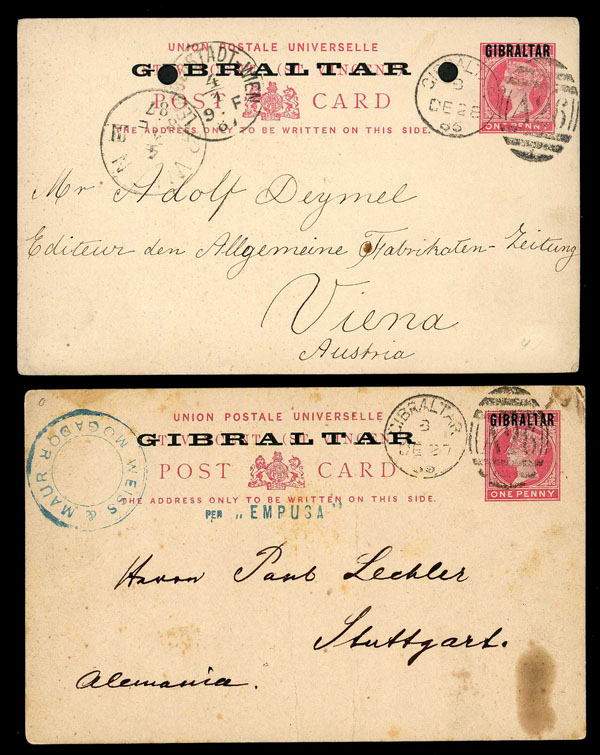 UNION POSTALE UNIVERSELLE
GIBRALTAR
POST CARD
THE ADDRESS ONLY TO BE WRITTEN ON THIS SIDE.
GIBRALTAR
ONE PENNY
GIBRALTAR
DE 28
86
A26
WIEN
Mr Adolf Deymel
Editeur den Allgemeine Fabrikaten-Zeitung
Viena
Austria
UNION POSTALE UNIVERSELLE
GIBRALTAR
POST CARD
THE ADDRESS ONLY TO BE WRITTEN ON THIS SIDE.
GIBRALTAR
ONE PENNY
GIBRALTAR
DE 27
A26
WEISS & MAUR
MOGADOR
PER „EMPUSA"
Herrn Paul Lechler
Stuttgart.
Alemania.